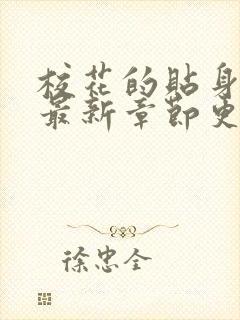 校花的贴身
最新章节更
徐忠全